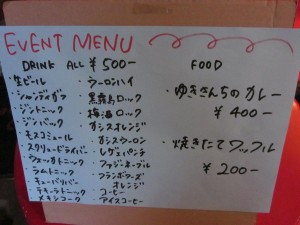 EVENT MENU
DRINK ALL ¥500-
・生ビール
・シャンディガフ
・ジントニック
・ジンバック
・モスコミュール
・スクリュードライバー
・ウォッカトニック
・ラムトニック
・キューバリバー
・テキーラトニック
・メキシコーク
・ウーロンハイ
・黒霧島ロック
・梅酒ロック
・カシスオレンジ
・カシスウーロン
・レゲェパンチ
・ファジーネーブル
・フランボワーズ
オレンジ
・コーヒー
・アイスコーヒー
FOOD
・ゆきさんちのカレー
¥400-
・焼きたてワッフル
¥200-